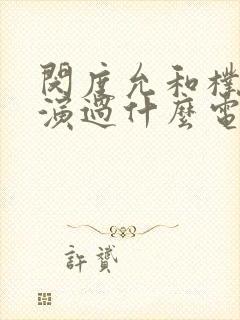 閔度允和樸
演過什麼電
許贊